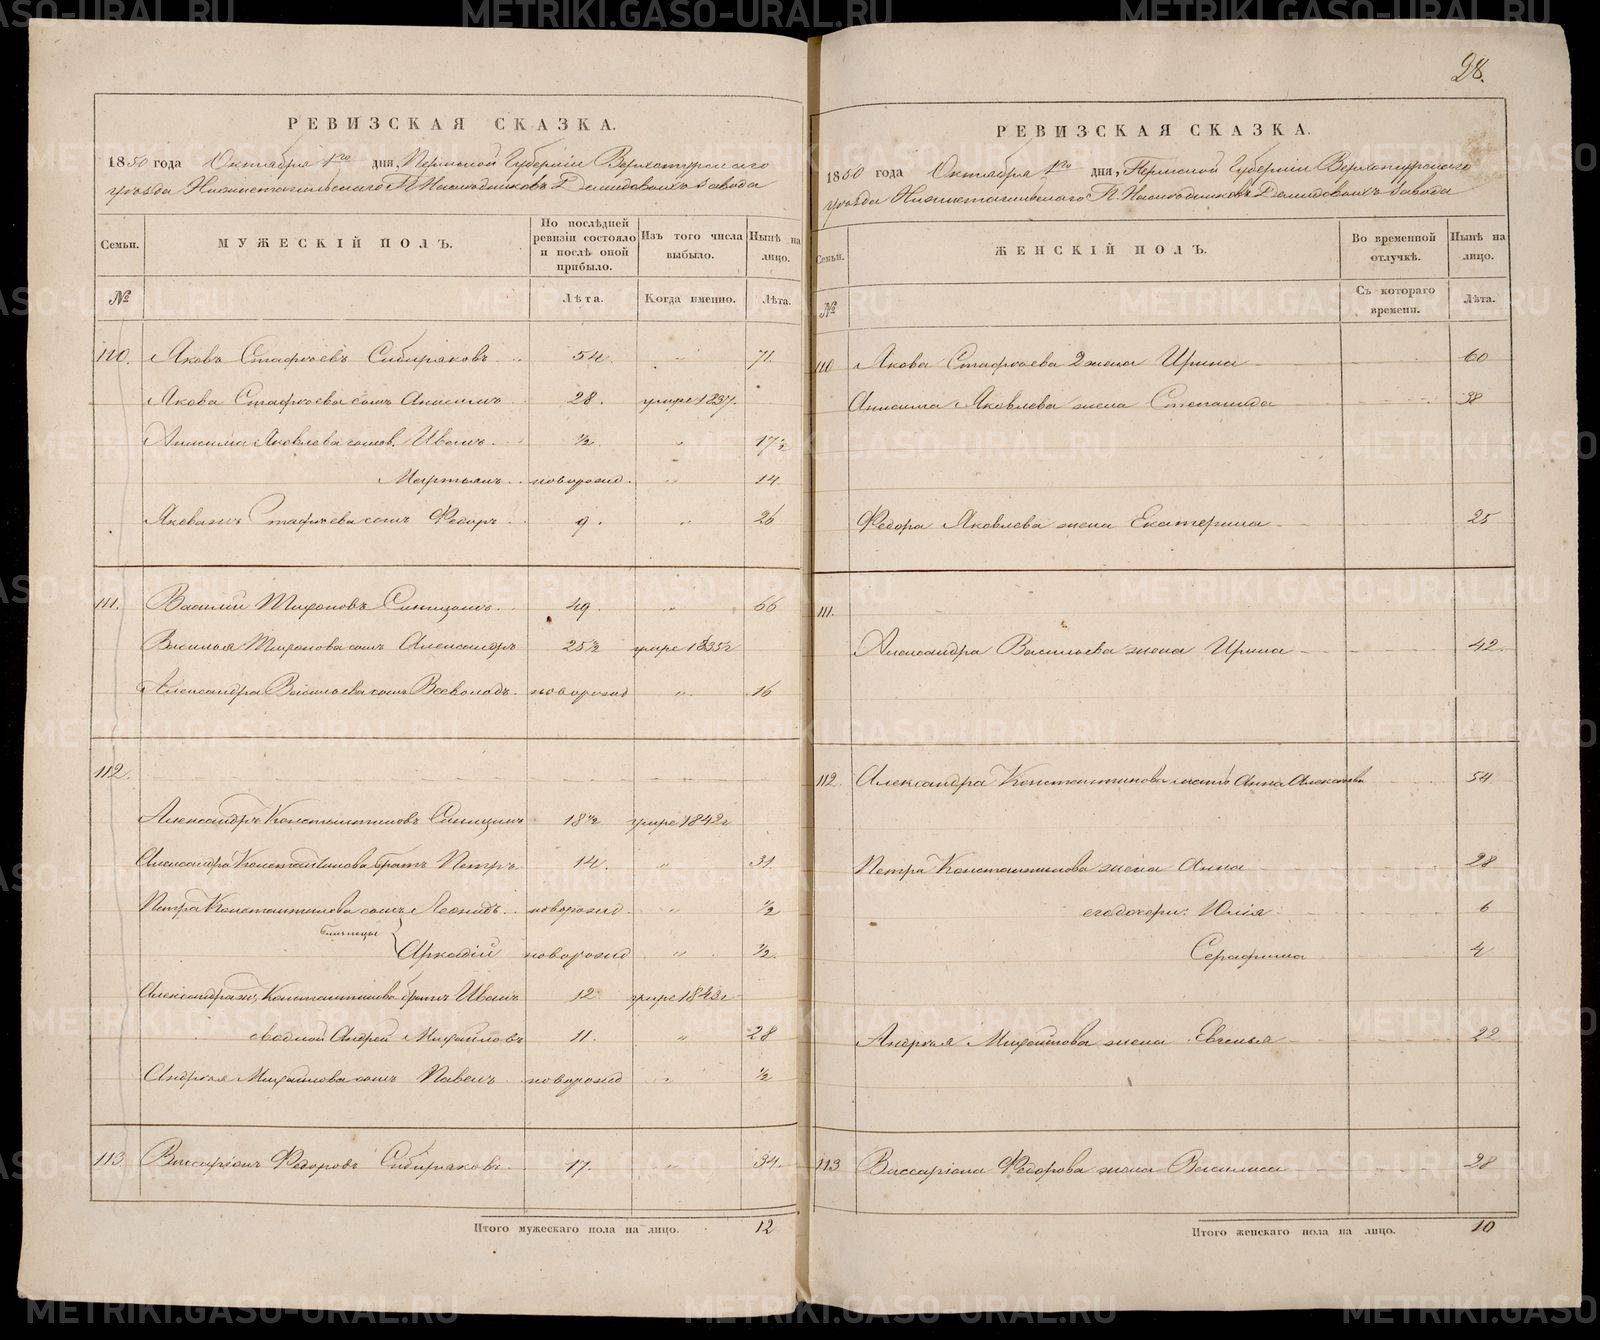 28.
РЕВИЗСКАЯ СКАЗКА.
1850 года Октября 1го дня, Пермской Губерніи Верхотурскаго
уѣзда Нижнетагильскаго Г.г. Наслѣдниковъ Демидовыхъ завода
Семьи. МУЖЕСКІЙ ПОЛЪ. По послѣдней ревизіи состояло и послѣ оной прибыло. Изъ того числа выбыло. Нынѣ на лицо.
№ Лѣта. Когда именно. Лѣта.
110. Яковъ Стафѣевъ Сибиряковъ 54 " 71
Якова Стафѣева сынъ Анисимъ 28. умре 1837.
Анисима Яковлева сынов. Иванъ ½ " 17½
Мартьянъ новорожд. " 14
Якова жъ Стафѣева сынъ Федоръ 9. " 26
111. Василій Тихоновъ Синицынъ 49. " 66
Василья Тихонова сынъ Александръ 25½ умре 1835г
Александра Васильева сынъ Всеволодъ новорожд " 16
112.
Александръ Константиновъ Синицынъ 18½ умре 1842г
Александра Константинова братъ Петръ 14. " 31
Петра Константинова сынъ Леонидъ новорожд. " ½
близнецы Аркадій новорожд " ½
Александра ж, Константинова братъ Иванъ 12 умре 1843г
сводной Андрей Михайловъ 11. " 28
Андрея Михайлова сынъ Павелъ новорожд " ½
113. Виссаріонъ Федоровъ Сибиряковъ 17. " 34.
Итого мужескаго пола на лицо. 12
РЕВИЗСКАЯ СКАЗКА.
1850 года Октября 1го дня, Пермской Губерніи Верхотурскаго
уѣзда Нижнетагильскаго Г.г. Наслѣдниковъ Демидовыхъ завода
Семьи. ЖЕНСКІЙ ПОЛЪ. Во временной отлучкѣ. Нынѣ на лицо.
№ Съ котораго времени. Лѣта.
110 Якова Стафѣева 2 жена Ирина 60
Анисима Яковлева жена Степанида 38
Федора Яковлева жена Екатерина 25
111.
Александра Васильева жена Ирина 42
112. Александра Константинова мать Анна Алексѣева 54
Петра Константинова жена Анна 28
его дочери: Юлія 6
Серафима 4
Андрея Михайлова жена Евгенья 22
113 Виссаріона Федорова жена Василиса 28
Итого женскаго пола на лицо. 10
METRIKI.GASO-URAL.RU